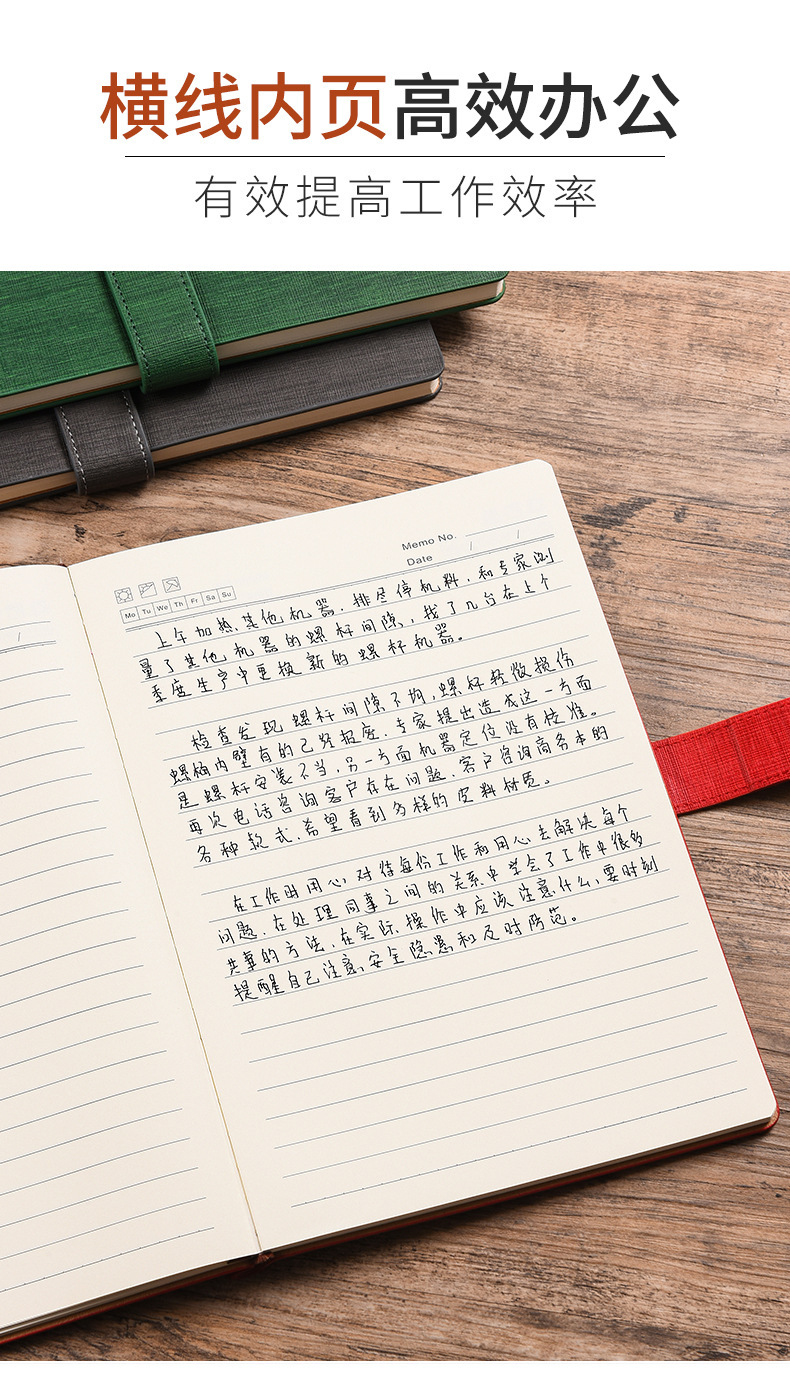 横线内页高效办公
有效提高工作效率
Memo No.
Date / /
Mo Tu We Th Fr Sa Su
/
上午加热其他机器.排尽停机料.和专家测
量了其他机器的螺杆间隙,找了几台在上个
季度生产中更换新的螺杆机器。
检查发现螺杆间隙不均,螺杆轻微损伤
螺桶内壁有的已经报废.专家提出造成这一方面
是螺杆安装不当,另一方面机器定位没有校准。
再次电话咨询客户存在问题.客户咨询商务本的
各种款式.希望看到多样的皮料材质。
在工作时用心,对待每份工作和用心去解决每个
问题.在处理同事之间的关系中学会了工作中很多
共事的方法.在实际操作中应该注意什么,要时刻
提醒自己注意安全隐患和及时防范。